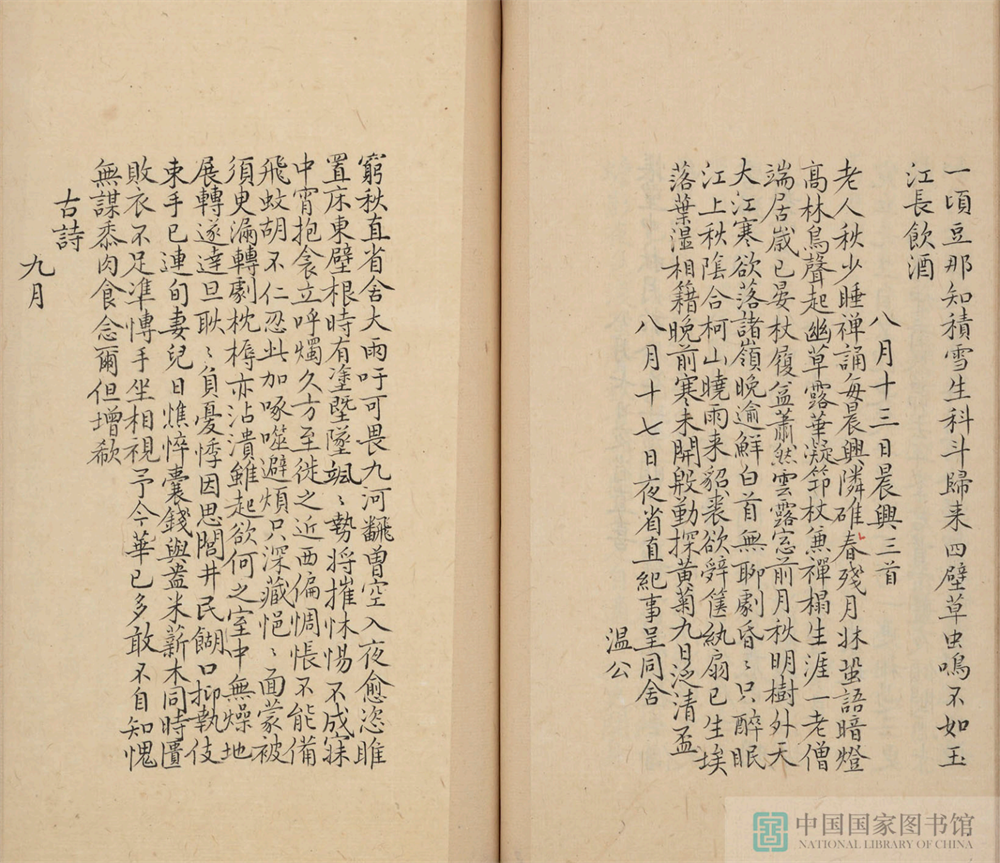 一頃豆那知積雪生科斗歸来四壁草虫鳴不如玉
江長飲酒
八月十三日晨興三首
老人秋少睡禅誦每晨興隣碓春殘月牀蛩語暗燈
髙林烏聲起幽草露華凝笻杖兼禪榻生涯一老僧
端居歲已晏杖履益蕭然雲露窓前月秋明樹外天
大江寒欲落諸嶺晚逾鮮白首無聊劇昏〻只醉眠
江上秋陰合柯山曉雨来貂裘欲辤篋紈扇已生埃
落葉濕相籍晚前寒未開殷勤探黄菊九日泛清盃
八月十七日夜省直紀事呈同舍
温公
窮秋直省舍大雨吁可畏九河飜曽空入夜愈恣睢
置床東壁根時有塗墍墜颯〻勢将摧怵惕不成寐
中宵抱衾立呼燭久方至徙之近西偏惆悵不能備
飛蚊胡不仁忍此加啄噬避煩只深藏悒〻面蒙被
須臾漏轉劇枕褥亦沾潰雖起欲何之室中無燥地
展轉遂達旦耿〻負憂悸因思閭井民餬口抑執伎
束手已連旬妻兒日憔悴囊錢與盎米薪木同時匱
敗衣不足準慱手坐相視予今華已多敢不自知愧
無謀黍肉食念爾但增欷
古詩
九月
中国国家图书馆
NATIONAL LIBRARY OF CHINA